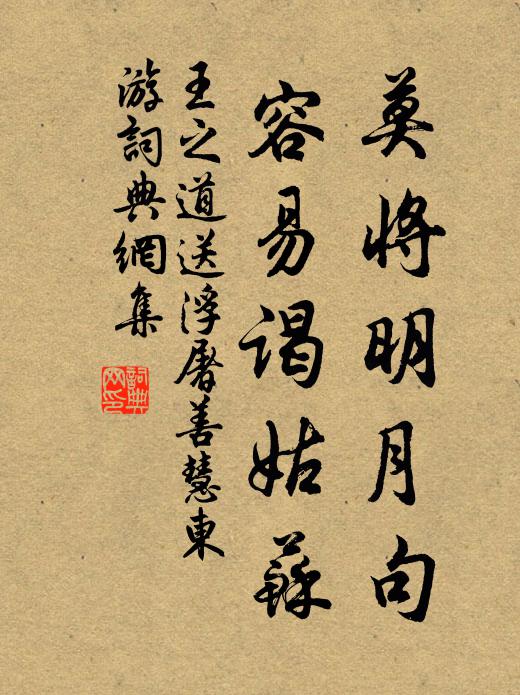 莫將明月句
容易謁姑蘇
王之道送浮屠善慧東
游詞典網集
詞典
网印